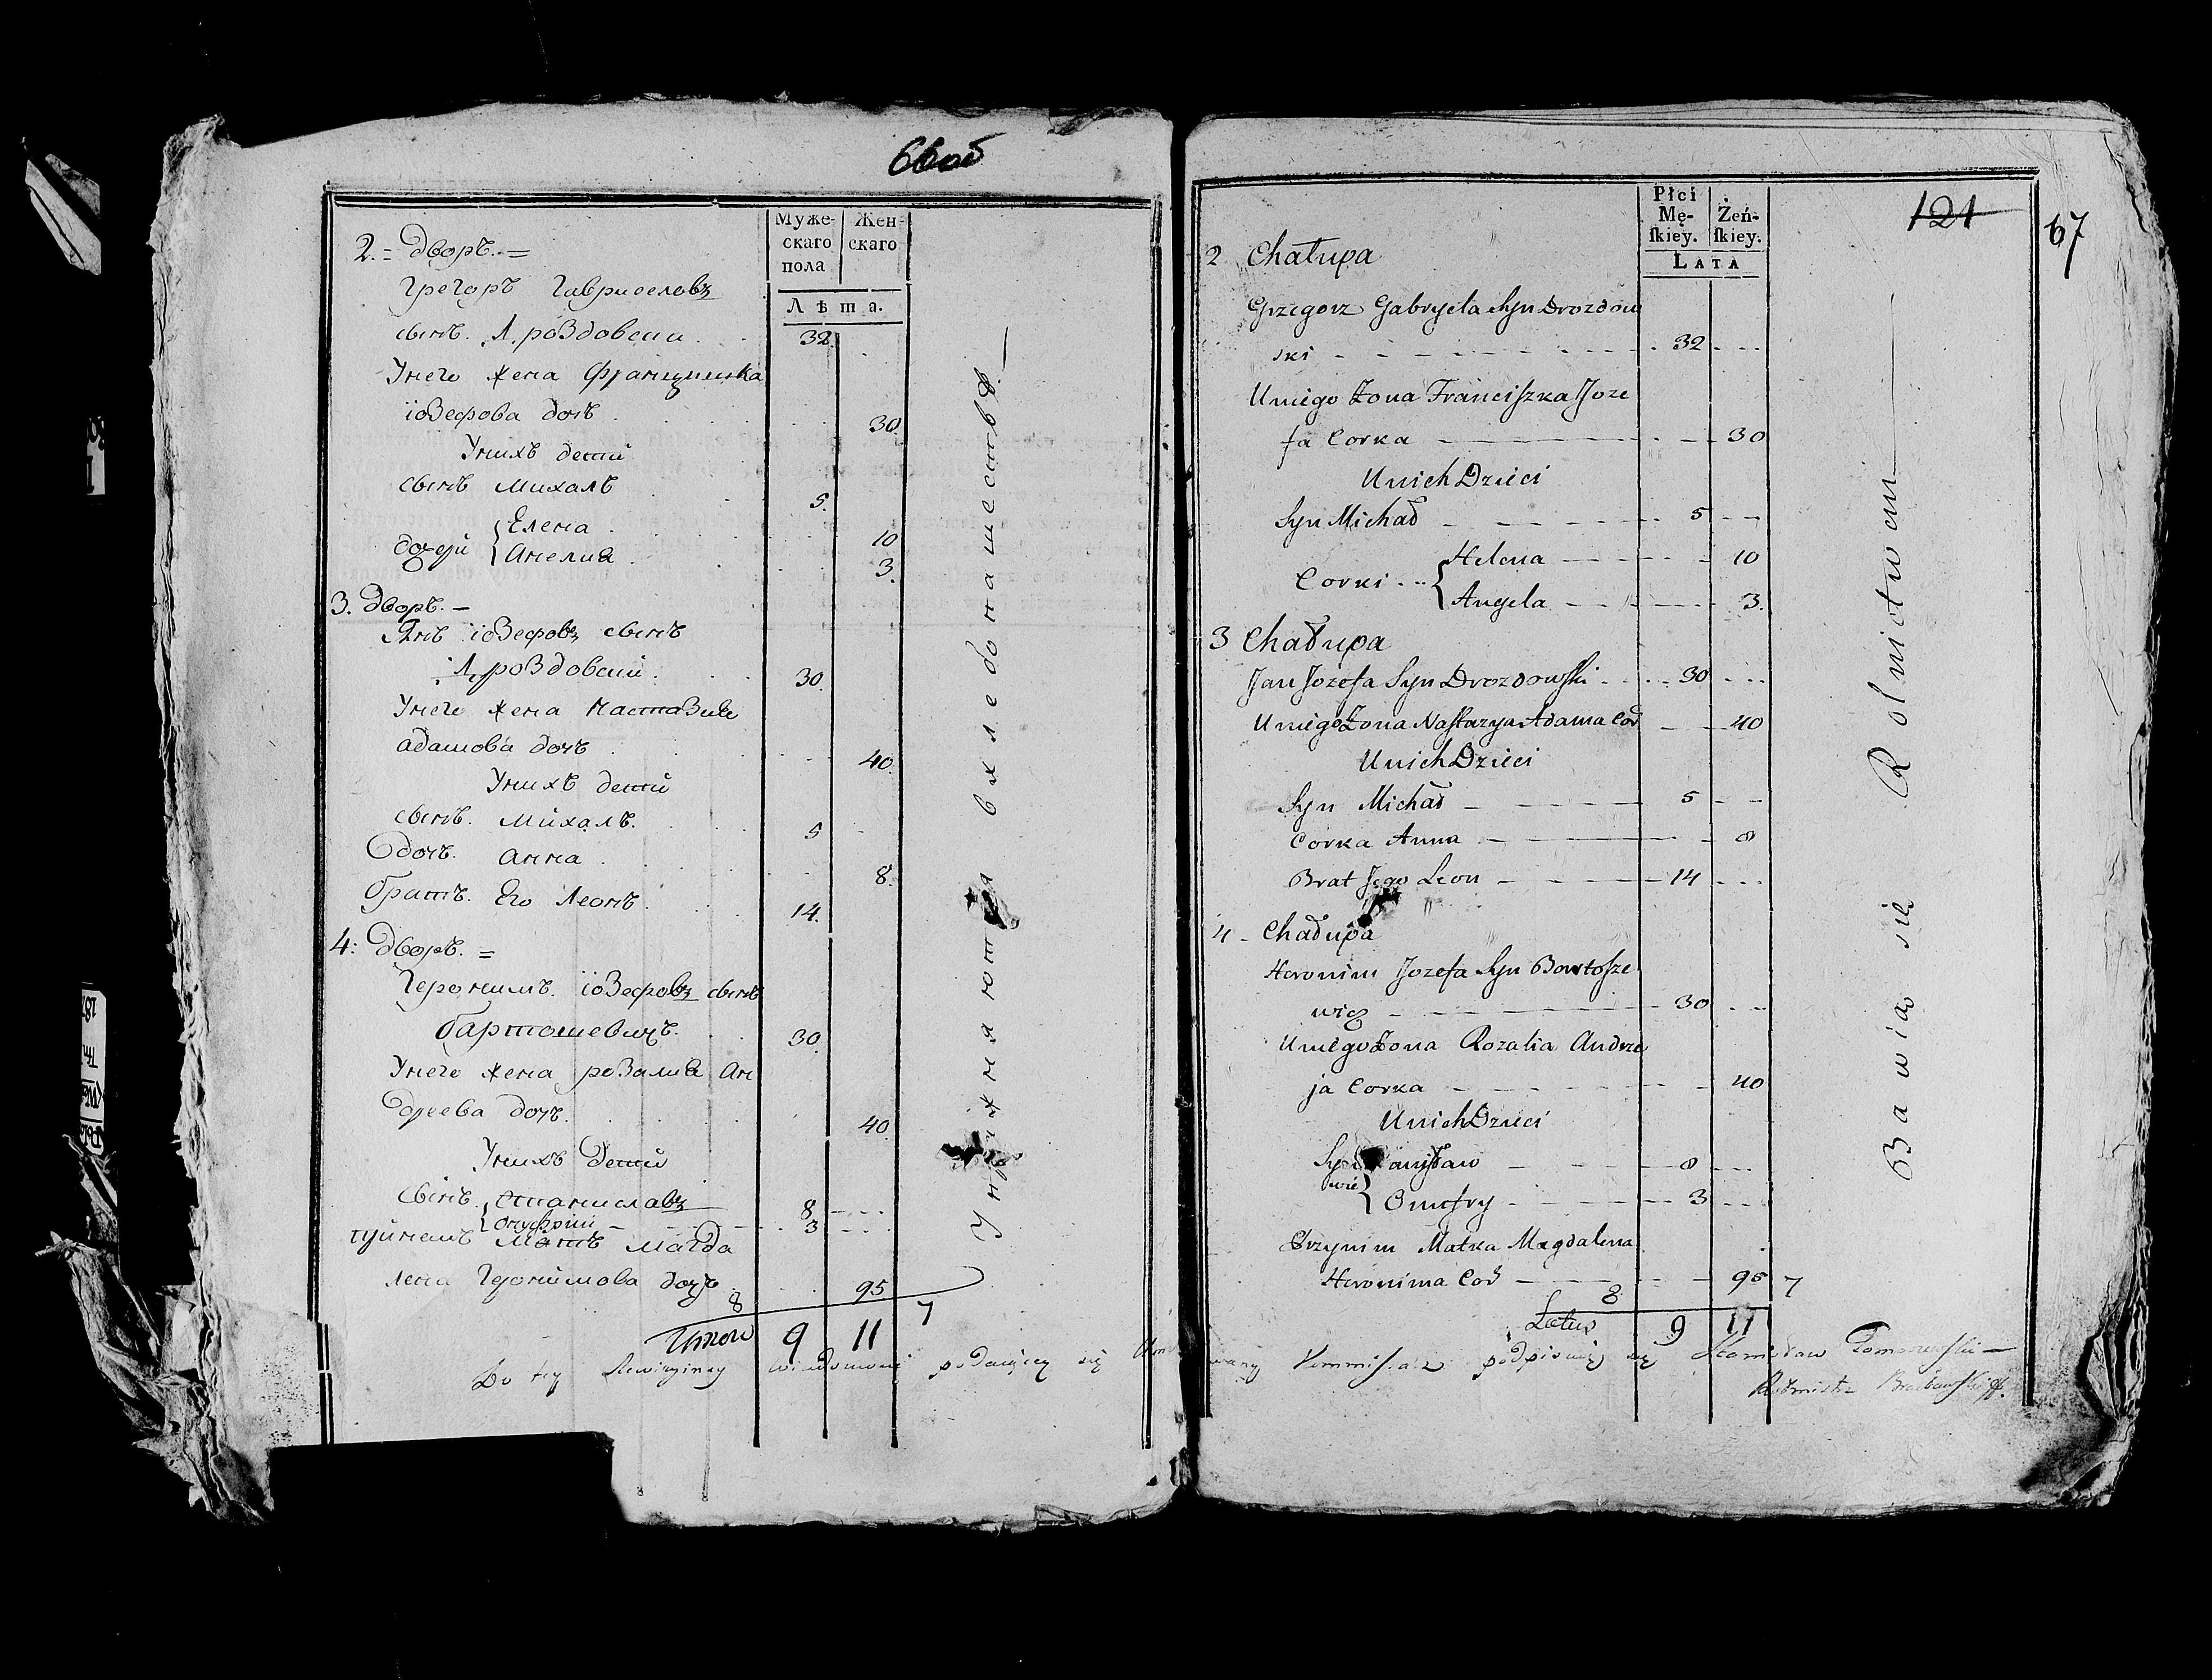 66об
Муже-
скаго
пола
Жен-
скаго
Лѣта.
2. = Дворъ. =
Грегоръ Гавриеловъ
сынъ. Дроздовски . . 32.
Унего жена Францишка
іозефова дочъ . 30.
Унихъ дети
сынъ Михалъ . 5.
дочери { Елена . 10
Анелиа . 3.
3. Дворъ. —
Янъ іозефовъ сынъ
Дроздовски . 30.
Унего жена Настазиа
адамова дочъ . 40.
Унихъ дети
сынъ. Михалъ. . 5
дочъ. анна . 8.
братъ. Его Леонъ . 14.
4: Дворъ. =
Геронимъ. іозефовъ сынъ
бартошевичъ. . 30.
Унего жена розалиа Ан
дреева дочъ. . 40.
Унихъ дети
сынъ. { Станиславъ 8
Онуфрии 3
Мать Магда
лена Геронимова дочъ . 95.
8 7
Итого 9 11
Упражняются в хледопашествѣ. —
Do tey Rewizyiney podaiący się
121
67
Płci
Mę-
ſkiey.
Żeń-
ſkiey.
LATA
2 Chałupa
Grzegorz Gabryela Syn Drozdow
ski - - - - 32 - - -
Uniego Żona Franciſzka Joze
fa Corka — 30
Unich Dzieci
Syn Michał - - - 5 - - -
Corki . . { Helena - - - 10
Angela - - - 3.
3 Chałupa
Jan Jozefa Syn Drozdowſki - - 30 - - -
Uniego Żona Naſtazya Adama Cor - - 40
Unich Dzieci
Syn Michał - - - 5 - -
Corka Anna - - - 8
Brat Jego Leon - - - 14 - - -
4 - Chałupa
Heronim Jozefa Syn Bartoſze
wicz - - - 30 - - -
Uniego Żona Rozalia Andrze
ja Corka - - - 40
Unich Dzieci
- - - 8 - - -
wie { Onufry - - - 3 - - -
Przynim Matka Magdalena
Heronima Cor - - - 95 7
8
Latus 9 11
Bawią się Rolnictwem —
podpisuię się Stanisław